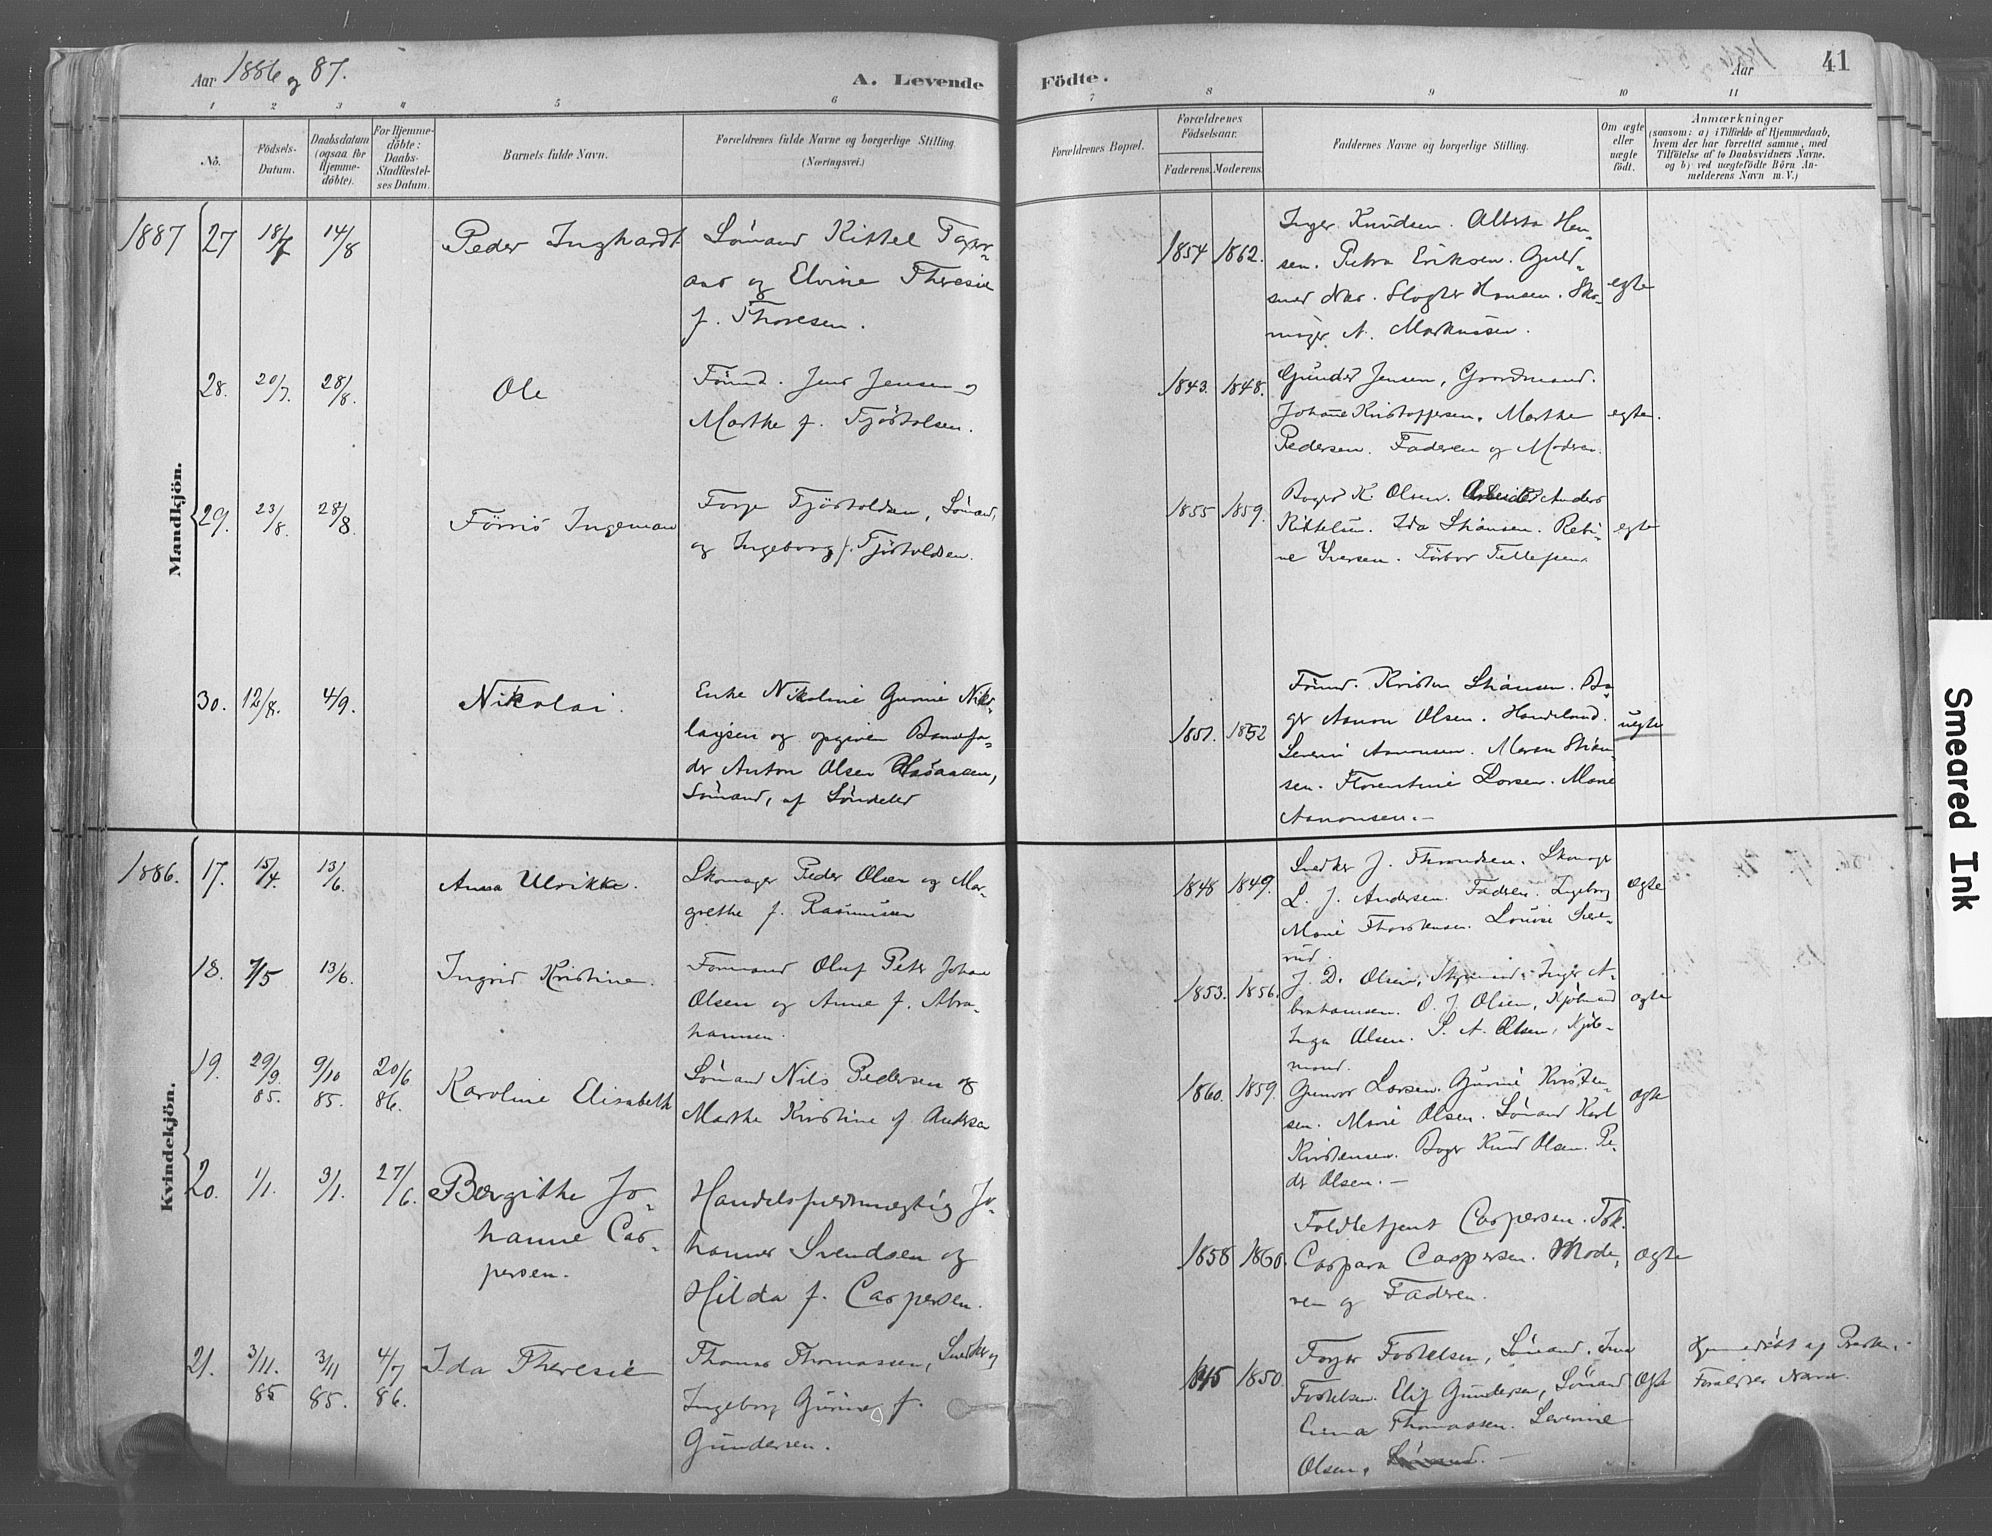 Aar 1886 og 87.
A. Levende Födte.
Aar
41
1 2 3 4 5 6 7 8 9 10 11
No.
Födsels-Datum.
Daabsdatum (ogsaa for Hjemme-döbte).
For Hjemme-döbte: Daabs-Stadfæstel-ses Datum.
Barnets fulde Navn.
Forældrenes fulde Navne og borgerlige Stilling (Næringsvei.)
Forældrenes Bopæl.
Forældrenes Födselsaar.
Faderens. Moderens.
Faddernes Navne og borgerlige Stilling.
Om ægte eller uægte födt.
Anmærkninger
(saasom: a) i Tilfælde af Hjemmedaab,
hvem der har forrettet samme, med
Tilföielse af to Daabsvidners Navne,
og b) ved uægtefödte Börn An-
melderens Navn m. V.)
Mandkjön.
1887 27 18/7 14/8 Peder Inghardt
Sömand Kittel
og Elvine Theresie
f. Thoresen.
1854 1862.
Inger Knudsen. Alberta Han-
sen. Petra Eriksen. Guld-
smed Slagter Hansen. Sko-
mager A. Markussen.
egte
28. 20/7. 28/8. Ole
Tömmd. Jens Jensen og
Marthe f. Tjöstolsen.
1843. 1848.
Gunder Jensen, Gaardmand.
Johanne Kristoffersen. Marthe
Pedersen. Faderen og Moderen.
egte.
29. 23/8. 28/8. Ingeman
Torje Tjöstoldsen, Sömand,
og Ingeborg f. Tjöstoldsen.
1855 1859.
K. Olsen. Arbeider Anders
Kittelsen. Ida Rebi-
ne Iversen. Torbor Tellefsen.
egte
30. 12/8. 4/9. Nikolai.
Enke Nikoline Gurine Niko-
laisen og opgiven Barnefa-
der Anton Olsen
Sömand, af Söndeled
1851. 1852
Tömmd. Kristen
Aanon Olsen. Handelsmd.
Severin Aanonsen. Maren
sen. Florentine Larsen. Marie
Aanonsen.—
uegte
Kvindekjön.
1886. 17. 15/4. 13/6. Anna Ulrikke.
Skomager Peder Olsen og Mar-
grethe f. Rasmussen
1848 1849.
Snedker J. Throndsen. Skomager
L. J. Andersen. Faderen. Ingeborg
Marie Thorstensen. Lovise
ægte
18. 7/5 13/6. Ingrid Kristine.
Tömmand Oluf Peter Johan
Olsen og Anne f. Abra-
hamsen.
1853. 1856.
J. D. Olsen, Styrmand. Inger A-
brahamsen. O. J. Olsen, Kjöbmand
Inga Olsen. S. A. Olsen, Kjöb-
mand.
ægte
19. 29/9. 85. 9/10 85. 20/6 86. Karoline Elisabeth
Sömand Nils Pedersen og
Marthe Kristine f. Andersen
1860. 1859.
Gunvor Larsen. Gurine Kristen-
sen. Marie Olsen. Sömand Karl
Kristensen. Knud Olsen. Pe-
der Olsen.—
ægte
20. 1/1. 3/1. 27/6. Bergithe Jo-
hanne Cas-
persen.
Handelsfuldmægtig Jo-
hannes Svendsen og
Hilda f. Caspersen.
1858 1860.
Toldbetjent Caspersen. Frk.
Caspara Caspersen. Mode-
ren og Faderen.
ægte
21. 3/11. 85 3/11 85. 4/7 86. Ida Theresie
Thomas Thomassen, Snedker og
Ingeborg Gurine f.
Gundersen.
1845 1850.
Sömand.
Elis Gundersen, Sömand
Emma Thomassen. Severine
Olsen,
ægte
Hjemmedöbt af
Forældres Navn.
Smeared Ink